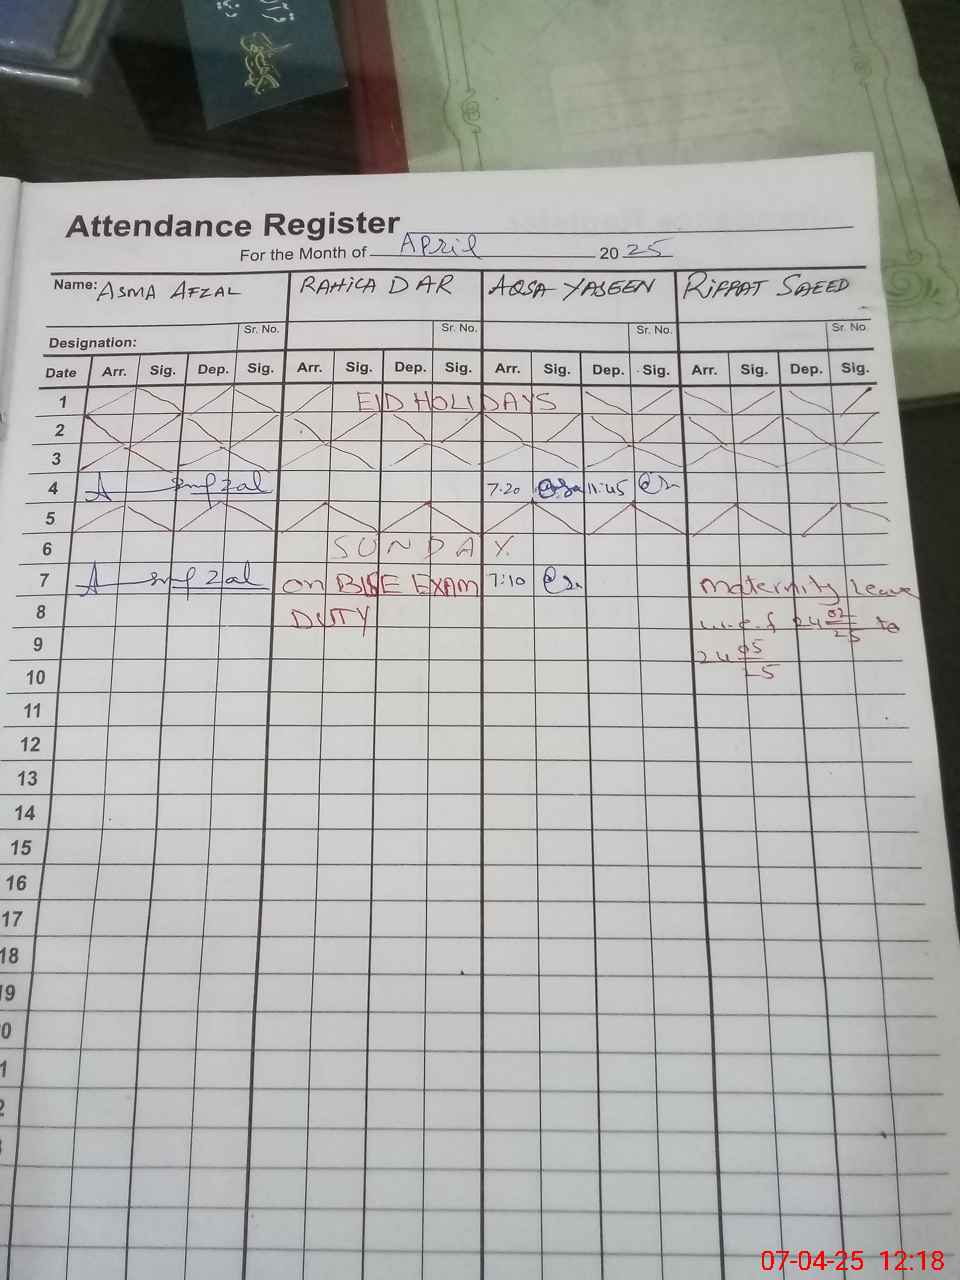 Attendance Register
For the Month of April 2025
Name: ASMA AFZAL RAHICA DAR AQSA YASEEN RIFFAT SAEED
Sr. No. Sr. No. Sr. No. Sr. No.
Designation:
Date Arr. Sig. Dep. Sig. Arr. Sig. Dep. Sig. Arr. Sig. Dep. Sig. Arr. Sig. Dep. Sig.
1 EID HOLIDAYS
2
3
4 7.20 11:45
5
6 SUNDAY.
7 on BISE EXAM 7:10 maternity Leave
8 DUTY w.e.f 24 02/25 to
9 24 05/25
10
11
12
13
14
15
16
17
18
19
07-04-25 12:18